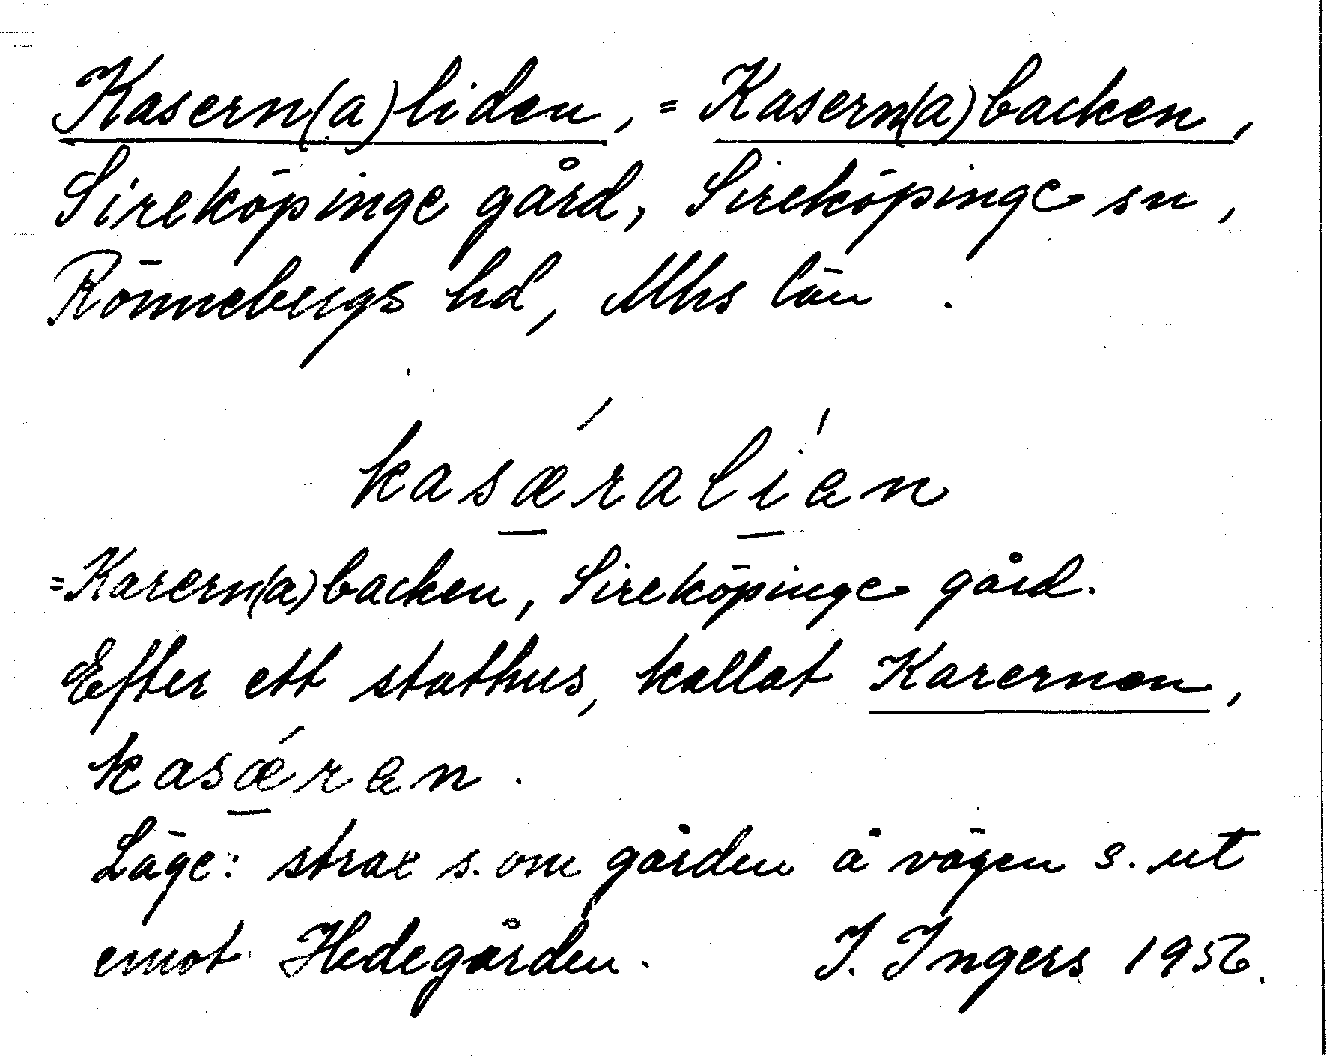 Kasern(a)liden, = Kasern(a)backen,
Sireköpinge gård, Sireköpinge sn,
Rönnebergs hd, Mhs län.
kasǽralían
= Kasern(a)backen, Sireköpinge gård.
Efter ett stathus, kallat Kasernen,
kasǽran.
Läge: strax s. om gården å vägen s. ut
emot Hedegården. I. Ingers 1956.